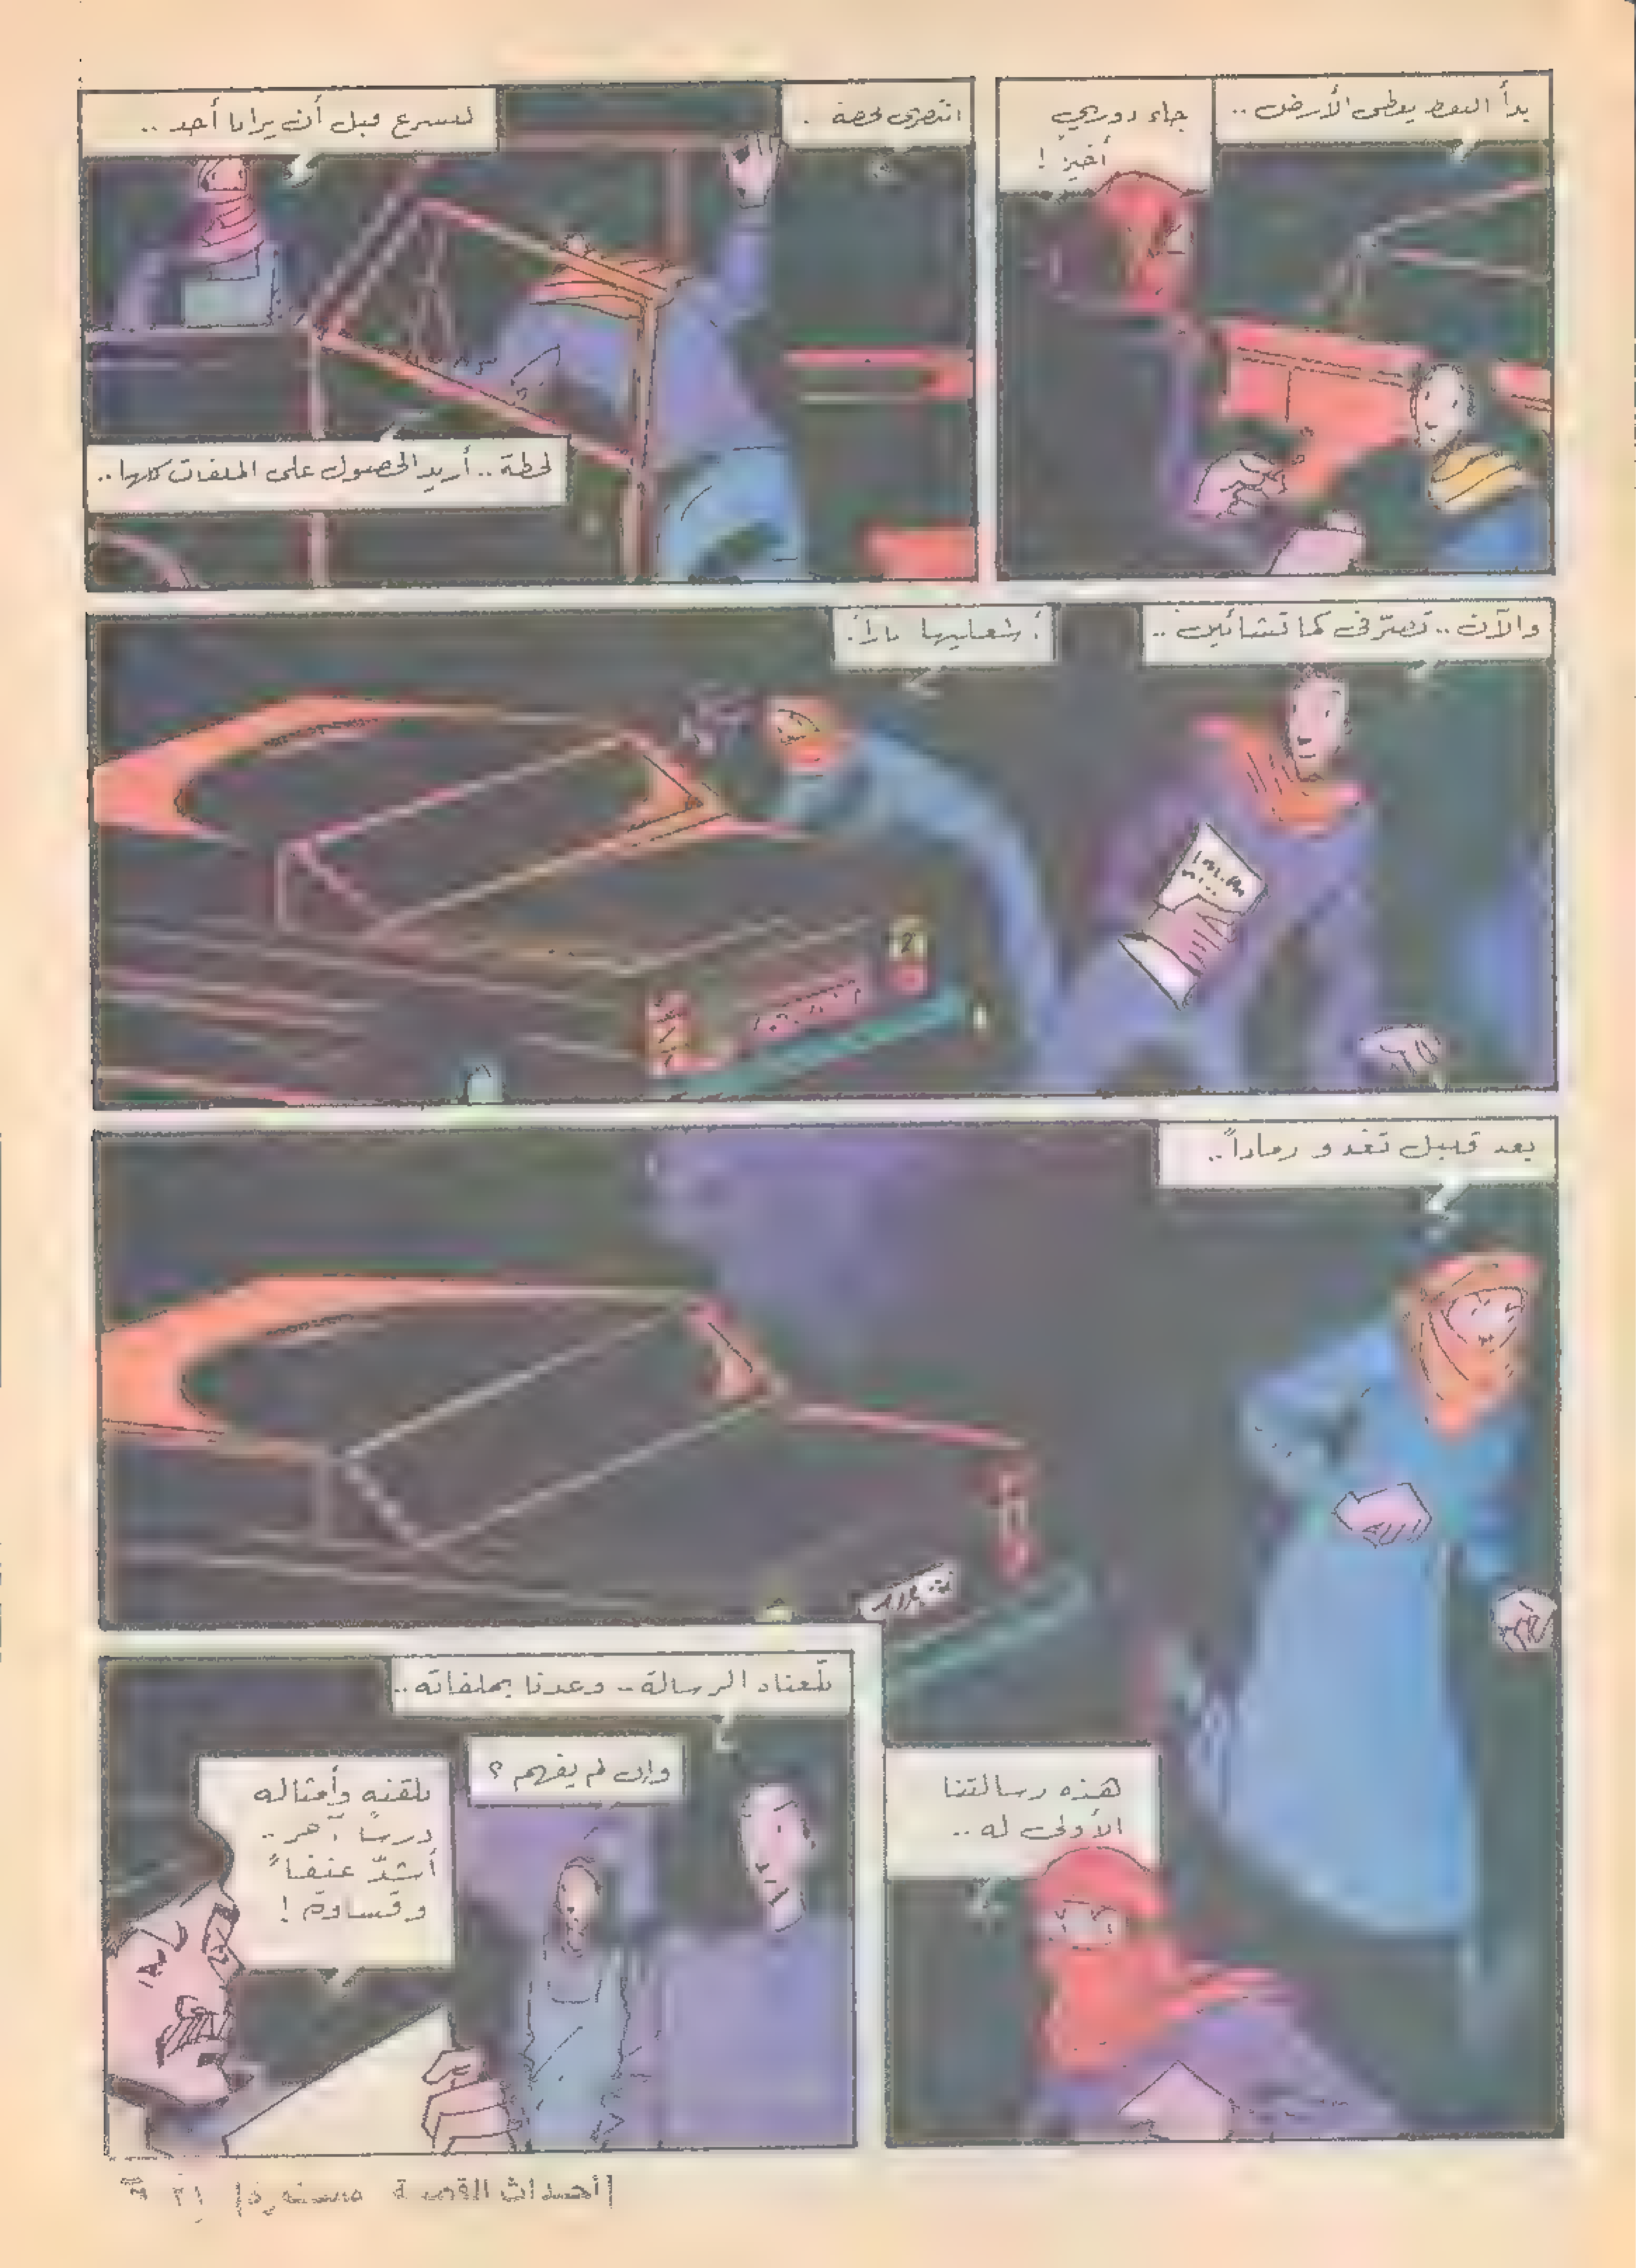 بدأ النفط يغطي الأرض ..
جاء دوري
أخيراً !
انتظري لحظة .
لنسرع قبل أن يرانا أحد ..
لحظة .. أريد الحصول على الملفات كلها ..
والآن .. تصرّفي كما تشائين ..
أشعليها ناراً .
بعد قليل تغدو رماداً ..
هذه رسالتنا
الأولى له ..
بلّغناه الرسالة .. وعدنا بملفاته ..
وإن لم يفهم ؟
نلقنه وأمثاله
درساً آخر ..
أشدّ عنفاً
وقساوة !
أحداث القصة